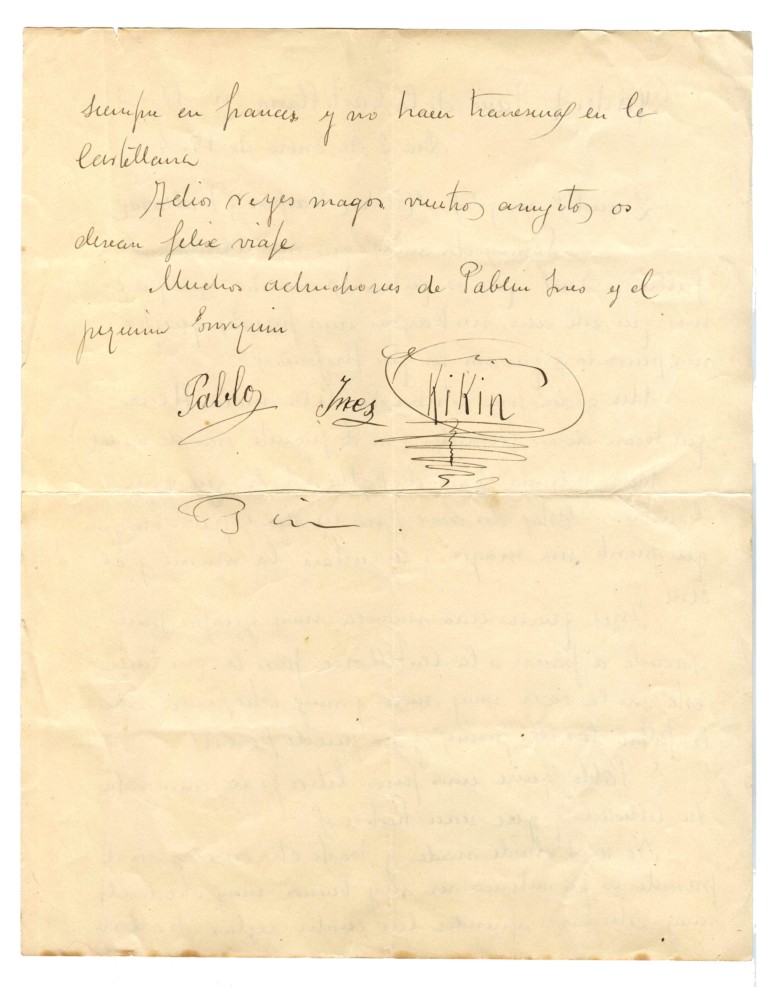 siempre en frances y no hacer travesuras en le
Castellana
Adios reyes magos vuestros amigitos os
desean felix viaje
Muchos achuchones de Pablin Ines y el
pequeno Enriquin
Pablo Ines KiKin